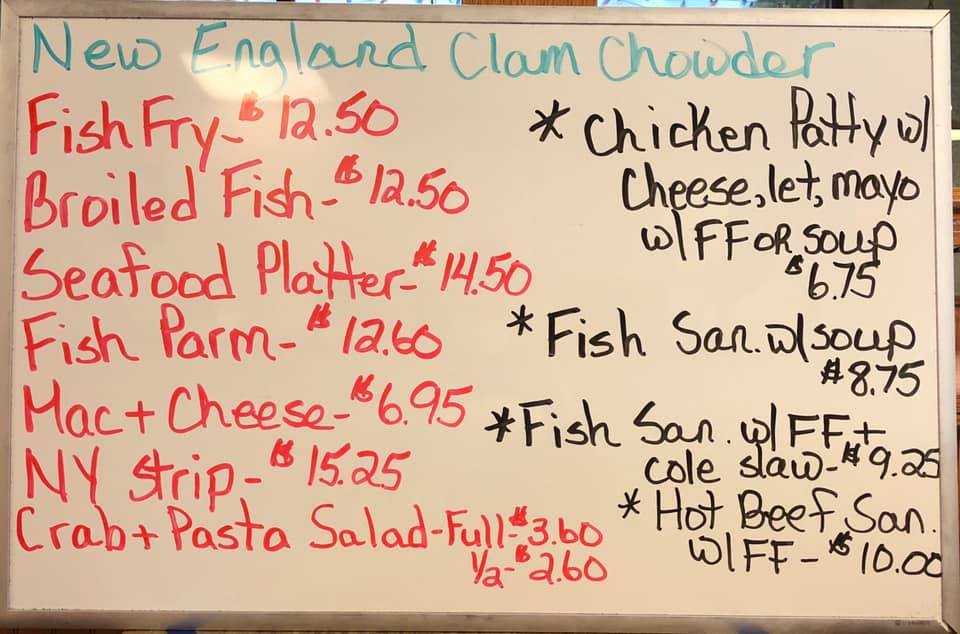 New England Clam Chowder
Fish Fry- $12.50
Broiled Fish- $12.50
Seafood Platter- $14.50
Fish Parm- $12.60
Mac + Cheese- $6.95
NY Strip- $15.25
Crab + Pasta Salad-Full-$3.60
1/2- $2.60
* Chicken Patty w/
Cheese, let, mayo
w/ FF OR soup
$6.75
* Fish San. w/ soup
$8.75
* Fish San. w/ FF +
cole slaw- $9.25
* Hot Beef San.
w/ FF - $10.00